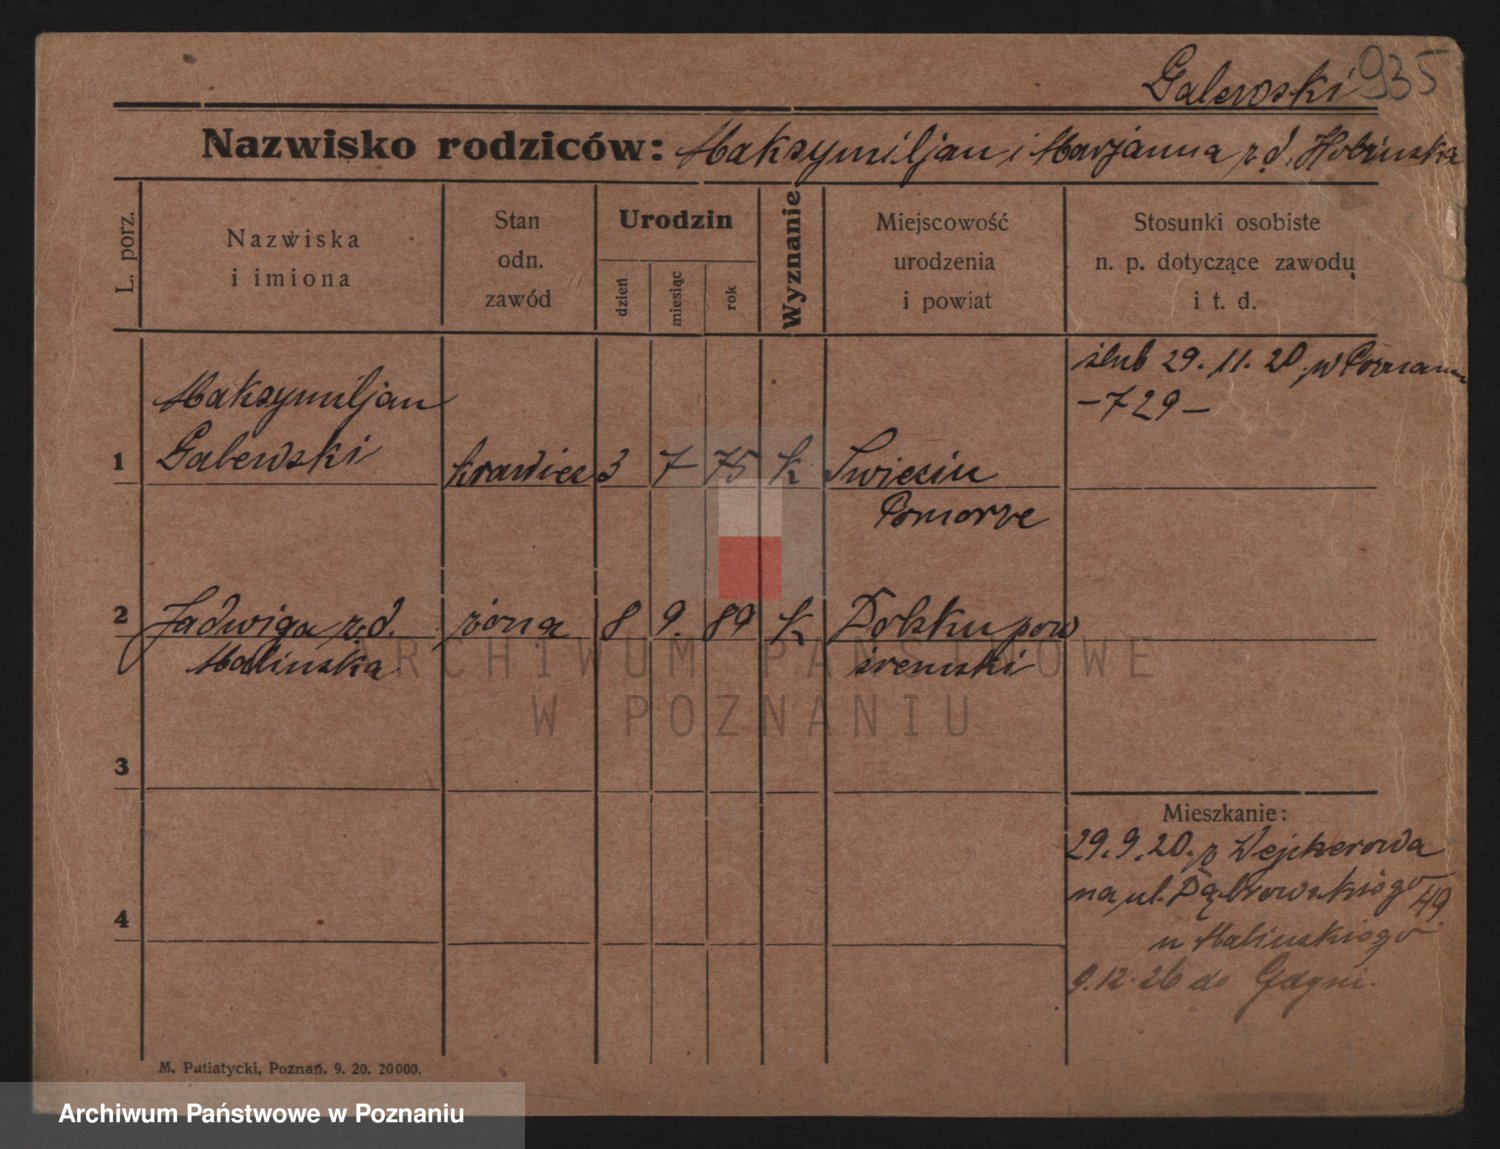 Galewski 935
Nazwisko rodziców: Maksymiljan i Marjanna z d.
L. porz.
Nazwiska
i imiona
Stan
odn.
zawód
Urodzin
dzień
miesiąc
rok
Wyznanie
Miejscowość
urodzenia
i powiat
Stosunki osobiste
n. p. dotyczące zawodu
i t. d.
ślub 29. 11. 20 w Poznaniu
– 729 –
Maksymiljan
1 Galewski krawiec 3 7 75 k Swiecin
Pomorze
2 Jadwiga z d. żona 8 9. 89 k pow
Malinska śremski
ARCHIWUM PAŃSTWOWE
W POZNANIU
3
Mieszkanie:
29. 9. 20. z Wejherowa
na ul. Dąbrowskiego 49.
4
u Malinskiego
9. 12. 26 do Gdyni.
M. Putiatycki, Poznań. 9. 20. 20000.
Archiwum Państwowe w Poznaniu